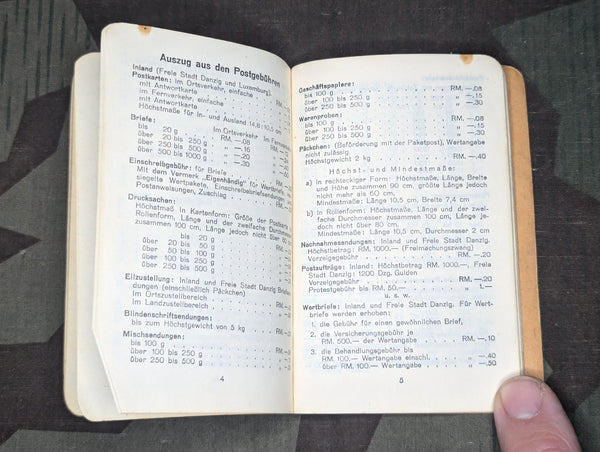 Auszug aus den Postgebühren
Inland (Freie Stadt Danzig und Luxemburg).
Postkarten: im Ortsverkehr, einfache
mit Antwortkarte
im Fernverkehr, einfache
mit Antwortkarte
Höchstmaße für In- und Ausland 14,8 : 10,5 cm
Briefe: im Ortsverkehr im Fernverkehr
bis 20 g RM. —.08
über 20 bis 250 g „ —.16
über 250 bis 500 g „ —.20
über 500 bis 1000 g „ —.30
Einschreibgebühr: für Briefe
Mit dem Vermerk „Eigenhändig“ für Wertbriefe
siegelte Wertpakete, Einschreibebriefsendungen
Postanweisungen, Zuschlag
Drucksachen:
Höchstmaß in Kartenform: Größe der Postkarte
Rollenform, Länge und der zweifache Durchmesser
zusammen 100 cm, Länge jedoch nicht über 80 cm
bis 20 g
über 20 bis 50 g
über 50 bis 100 g
über 100 bis 250 g
über 250 bis 500 g
Eilzustellung: Inland und Freie Stadt Danzig
dungen (einschließlich Päckchen)
im Ortszustellbereich
im Landzustellbereich
Blindenschriftsendungen:
bis zum Höchstgewicht von 5 kg RM.
Mischsendungen:
bis 100 g
über 100 bis 250 g
über 250 bis 500 g
4
Geschäftspapiere:
bis 100 g RM. —.08
über 100 bis 250 g „ —.15
über 250 bis 500 g „ —.30
Warenproben:
bis 100 g RM. —.08
über 100 bis 250 g „ —.15
über 250 bis 500 g „ —.30
Päckchen: (Beförderung mit der Paketpost), Wertangabe
nicht zulässig.
Höchstgewicht 2 kg RM. —.40
Höchst- und Mindestmaße:
a) in rechteckiger Form: Höchstmaße, Länge, Breite
und Höhe zusammen 90 cm, größte Länge jedoch
nicht mehr als 60 cm,
Mindestmaße: Länge 10,5 cm, Breite 7,4 cm
b) in Rollenform: Höchstmaße, Länge und der zwei-
fache Durchmesser zusammen 100 cm, Länge
jedoch nicht über 80 cm.
Mindestmaße: Länge 10,5 cm, Durchmesser 2 cm
Nachnahmesendungen: Inland und Freie Stadt Danzig.
Höchstbetrag: RM. 1000.— (Freimachungszwang)
Vorzeigegebühr RM. —.20
Postaufträge: Inland: Höchstbetrag RM. 1000.—, Freie
Stadt Danzig: 1200 Dzg. Gulden
Vorzeigegebühr RM. —.20
Protestgebühr bis RM. 50.— „ 1.—
u. s. w.
Wertbriefe: Inland und Freie Stadt Danzig. Für Wert-
briefe werden erhoben:
1. die Gebühr für einen gewöhnlichen Brief,
2. die Versicherungsgebühr je
RM. 500.— der Wertangabe RM. —.10
3. die Behandlungsgebühr bis
RM. 100.— Wertangabe einschl. „ —.40
über RM. 100.— Wertangabe „ —.50
5